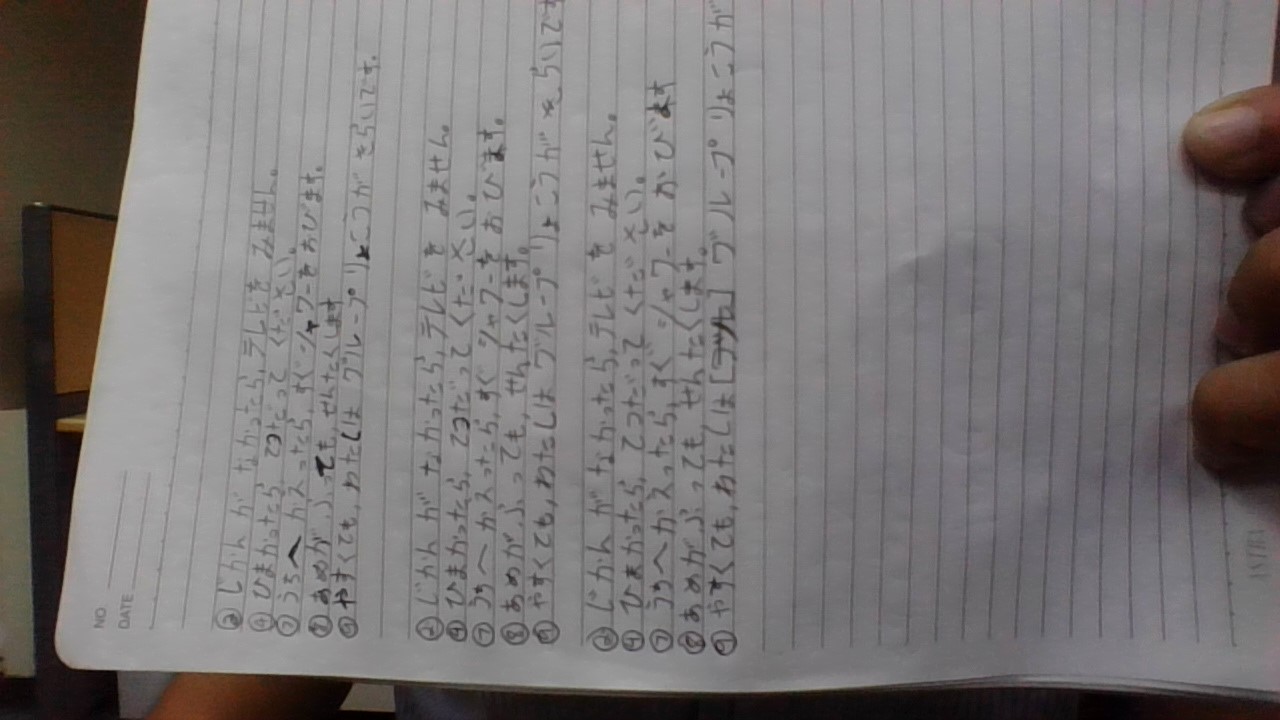 NO.
DATE
② じかんが なかったら, テレビを みません。
④ ひまかったら, てつだって ください。
⑦ うちへ かえったら, すぐ シャワーを あびます。
⑧ あめが ふっても, せんたくします
⑨ やすくても, わたしは グループ りょこうが きらいです。
② じかんが なかったら, テレビを みません。
④ ひまかったら, てつだって ください。
⑦ うちへ かえったら, すぐ シャワーを あびます。
⑧ あめが ふっても, せんたくします。
⑨ やすくても, わたしは グループ りょこうが きらいです
② じかんが なかったら, テレビを みません。
④ ひまかったら, てつだって ください。
⑦ うちへ かえったら, すぐ シャワーを あびます
⑧ あめが ふっても, せんたくします。
⑨ やすくても, わたしは グループ りょこうが